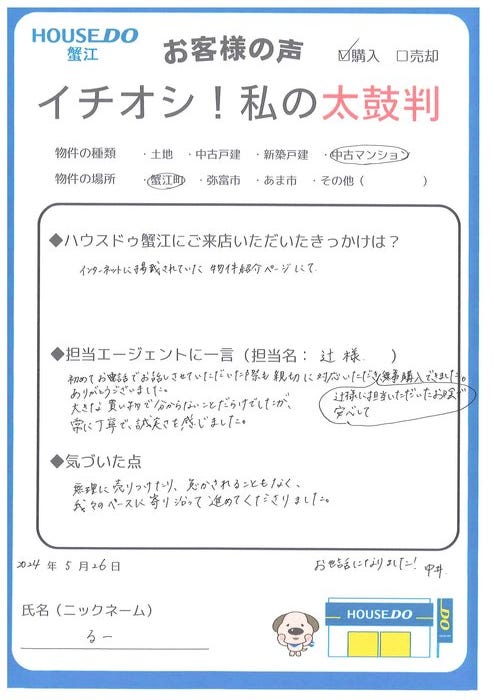 HOUSEDO
蟹江
お客様の声
☑購入 □売却
イチオシ！私の太鼓判
物件の種類 ・土地 ・中古戸建 ・新築戸建 ・中古マンション
物件の場所 ・蟹江町 ・弥富市 ・あま市 ・その他（ ）
◆ハウスドゥ蟹江にご来店いただいたきっかけは？
インターネットに掲載されていた 物件紹介ページにて
◆担当エージェントに一言（担当名：辻 様 ）
初めてお電話でお話しさせていただいた際も親切に対応いただき無事購入できました。
ありがとうございました。
大きな買い物で分からないことだらけでしたが、
辻様に担当いただいたお陰で
安心して
常に丁寧で、誠実さを感じました。
◆気づいた点
無理に売りつけたり、急かされることもなく、
我々のペースに寄り沿って進めてくださりました。
2024 年 5 月 26 日
お世話になりました！ 中井
氏名（ニックネーム）
るー
HOUSEDO
DO